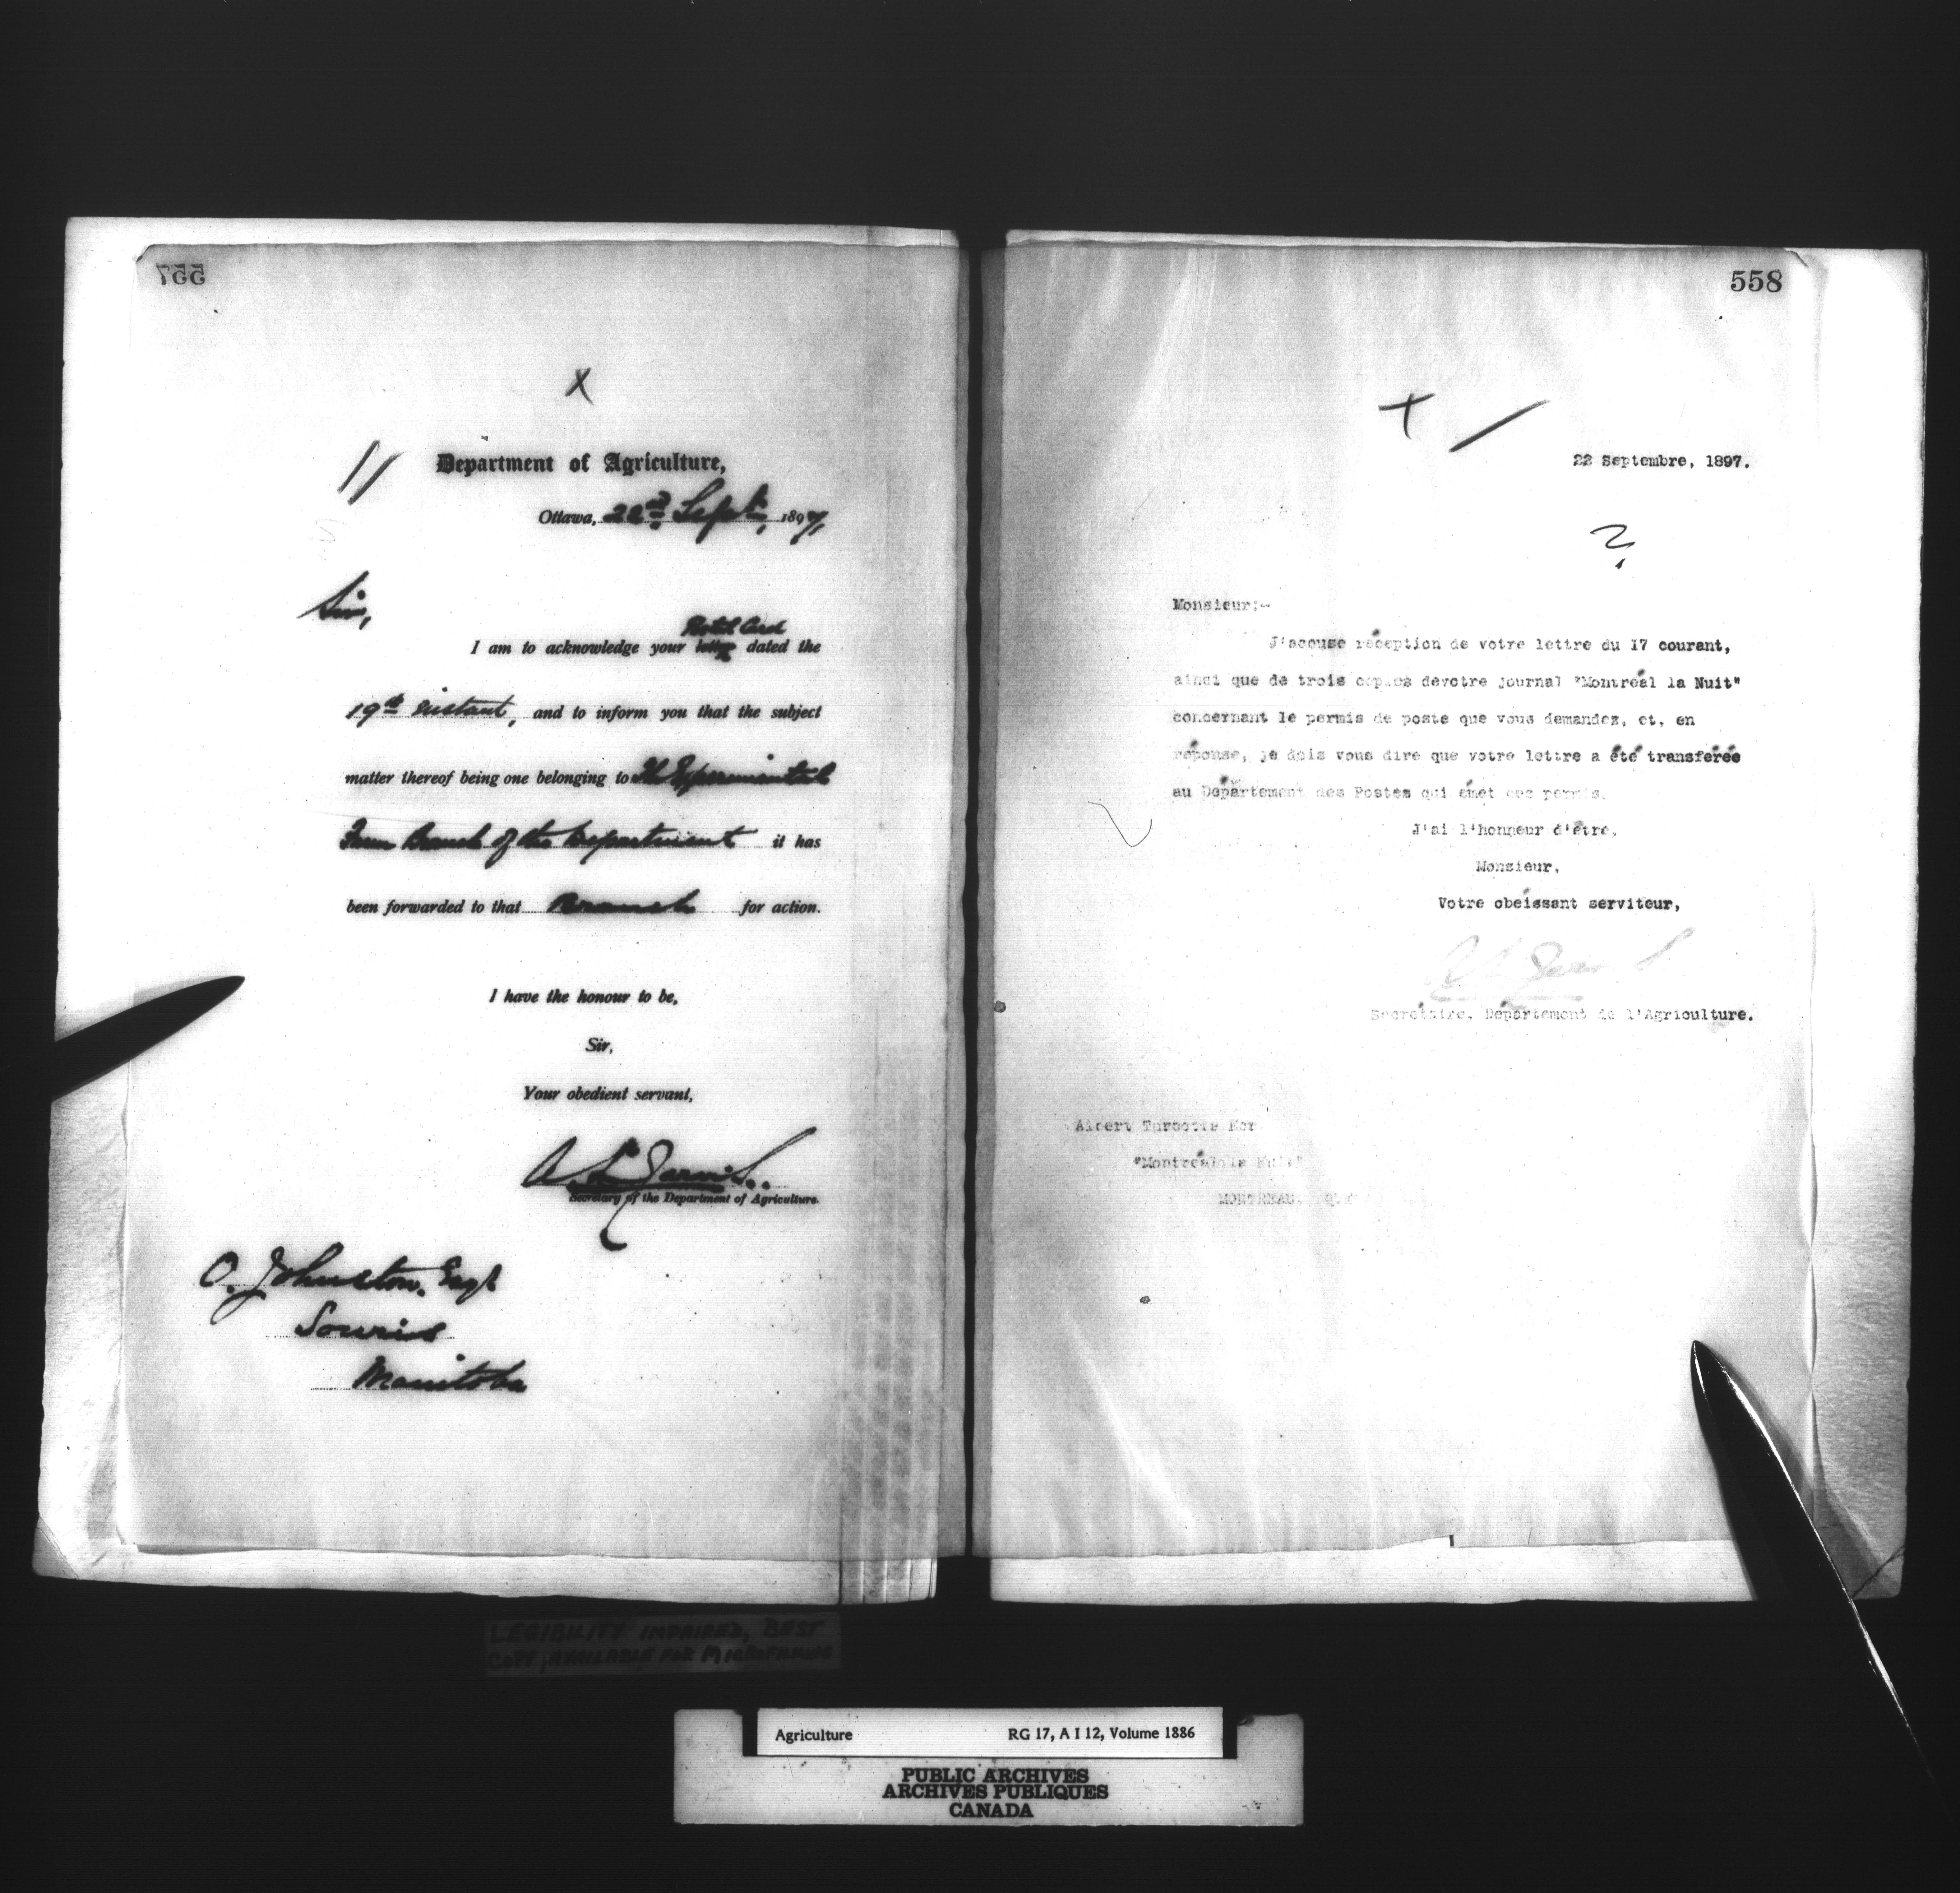 557
X
Department of Agriculture,
Ottawa, 22nd Sept., 1897
Sir,
Postal Card
I am to acknowledge your letter dated the
19th instant, and to inform you that the subject
matter thereof being one belonging to the Experimental
Farm Branch of the Department it has
been forwarded to that Branch for action.
I have the honour to be,
Sir,
Your obedient servant,
Secretary of the Department of Agriculture.
O. Johnston, Esq
Souris
Manitoba
558
22 Septembre, 1897.
?
Monsieur:-
J'accuse réception de votre lettre du 17 courant,
ainsi que de trois copies devotre journal "Montréal la Nuit"
concernant le permis de poste que vous demandez, et, en
réponse, je dois vous dire que votre lettre a été transférée
au Département des Postes qui émet ces permis.
J'ai l'honneur d'être,
Monsieur,
Votre obéissant serviteur,
Secrétaire, Département de l'Agriculture.
Albert
"Montréal la Nuit"
MONTREAL. Que
LEGIBILITY IMPAIRED, BEST
COPY AVAILABLE FOR MICROFILMING
Agriculture RG 17, A I 12, Volume 1886
PUBLIC ARCHIVES
ARCHIVES PUBLIQUES
CANADA